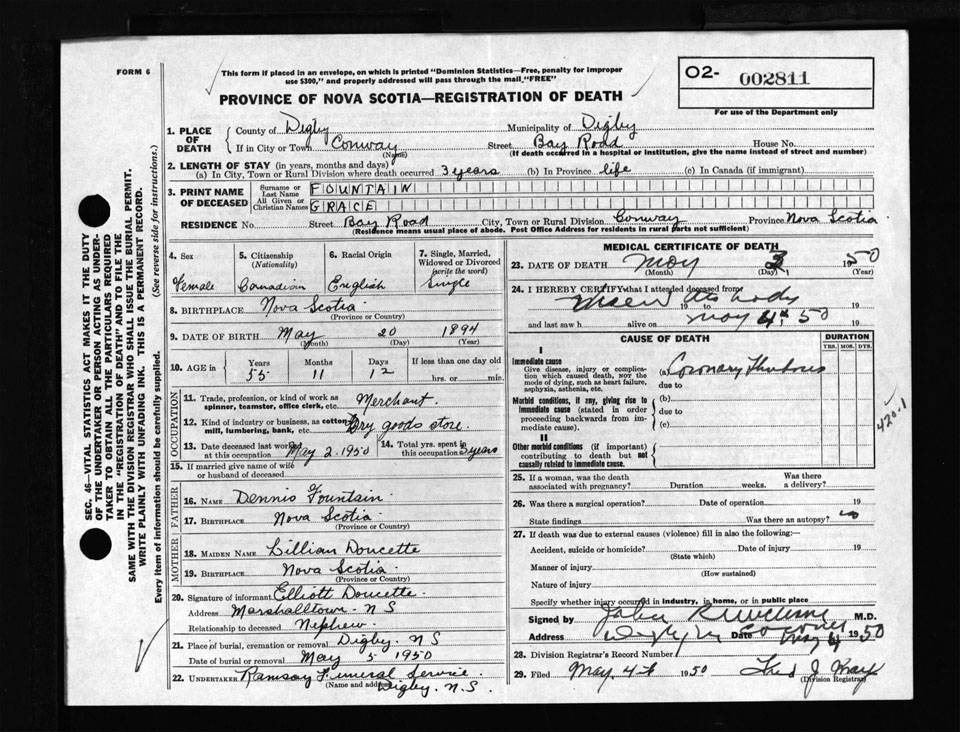 FORM 6
This form if placed in an envelope, on which is printed "Dominion Statistics—Free, penalty for improper
use $300," and properly addressed will pass through the mail "FREE"
O2- 002811
For use of the Department only
PROVINCE OF NOVA SCOTIA—REGISTRATION OF DEATH
1. PLACE OF DEATH
County of Digby Municipality of Digby
If in City or Town Conway Street Bay Road House No.
(Name) (If death occurred in a hospital or institution, give the name instead of street and number)
2. LENGTH OF STAY (in years, months and days)
(a) In City, Town or Rural Division where death occurred 3 years (b) In Province life (c) In Canada (if immigrant)
3. PRINT NAME OF DECEASED
Surname or Last Name FOUNTAIN
All Given or Christian Names GRACE
RESIDENCE No. Street Bay Road City, Town or Rural Division Conway Province Nova Scotia
(Residence means usual place of abode. Post Office Address for residents in rural parts not sufficient)
4. Sex Female
5. Citizenship (Nationality) Canadian
6. Racial Origin English
7. Single, Married, Widowed or Divorced (write the word) Single
8. BIRTHPLACE Nova Scotia
(Province or Country)
9. DATE OF BIRTH May 20 1894
(Month) (Day) (Year)
10. AGE in Years 55 Months 11 Days 12 If less than one day old
hrs. or min.
OCCUPATION
11. Trade, profession or kind of work as
spinner, teamster, office clerk, etc. Merchant.
12. Kind of industry or business, as cotton
mill, lumbering, bank, etc. Dry goods store.
13. Date deceased last worked
at this occupation May 2. 1950
14. Total yrs. spent in
this occupation 3 years
15. If married give name of wife
or husband of deceased
FATHER
16. NAME Dennis Fountain.
17. BIRTHPLACE Nova Scotia
(Province or Country)
MOTHER
18. MAIDEN NAME Lillian Doucette
19. BIRTHPLACE Nova Scotia
(Province or Country)
20. Signature of informant Elliott Doucette.
Address Marshalltown. N S
Relationship to deceased Nephew.
21. Place of burial, cremation or removal Digby. N S
Date of burial or removal May 5 1950
22. UNDERTAKER Ramsay Funeral Service
(Name and address) Digby. N. S.
MEDICAL CERTIFICATE OF DEATH
23. DATE OF DEATH May 3 1950
(Month) (Day) (Year)
24. I HEREBY CERTIFY that I attended deceased from
19 to 19
and last saw h alive on May 4th 50 19
CAUSE OF DEATH
DURATION
YRS. MOS. DYS.
I
Immediate cause
Give disease, injury or complication which caused death, NOT the
mode of dying, such as heart failure,
asphyxia, asthenia, etc.
(a) Coronary
due to
Morbid conditions, if any, giving rise to
immediate cause (stated in order
proceeding backwards from immediate cause)
(b)
due to
(c)
II
Other morbid conditions (if important)
contributing to death but not
causally related to immediate cause.
420-1
25. If a woman, was the death
associated with pregnancy? Duration weeks. Was there
a delivery?
26. Was there a surgical operation? Date of operation 19
State findings Was there an autopsy? no
27. If death was due to external causes (violence) fill in also the following:—
Accident, suicide or homicide? Date of injury 19
(State which)
Manner of injury
(How sustained)
Nature of injury
Specify whether injury occurred in industry, in home, or in public place
Signed by M.D.
Address Digby Coroner Date May 4 1950
28. Division Registrar's Record Number
29. Filed May 4th 1950 Fred J
(Division Registrar)
SEC. 46—VITAL STATISTICS ACT MAKES IT THE DUTY
OF THE UNDERTAKER OR PERSON ACTING AS UNDERTAKER TO OBTAIN ALL THE PARTICULARS REQUIRED
IN THE "REGISTRATION OF DEATH" AND TO FILE THE
SAME WITH THE DIVISION REGISTRAR WHO SHALL ISSUE THE BURIAL PERMIT.
WRITE PLAINLY WITH UNFADING INK. THIS IS A PERMANENT RECORD.
Every item of information should be carefully supplied. (See reverse side for instructions.)